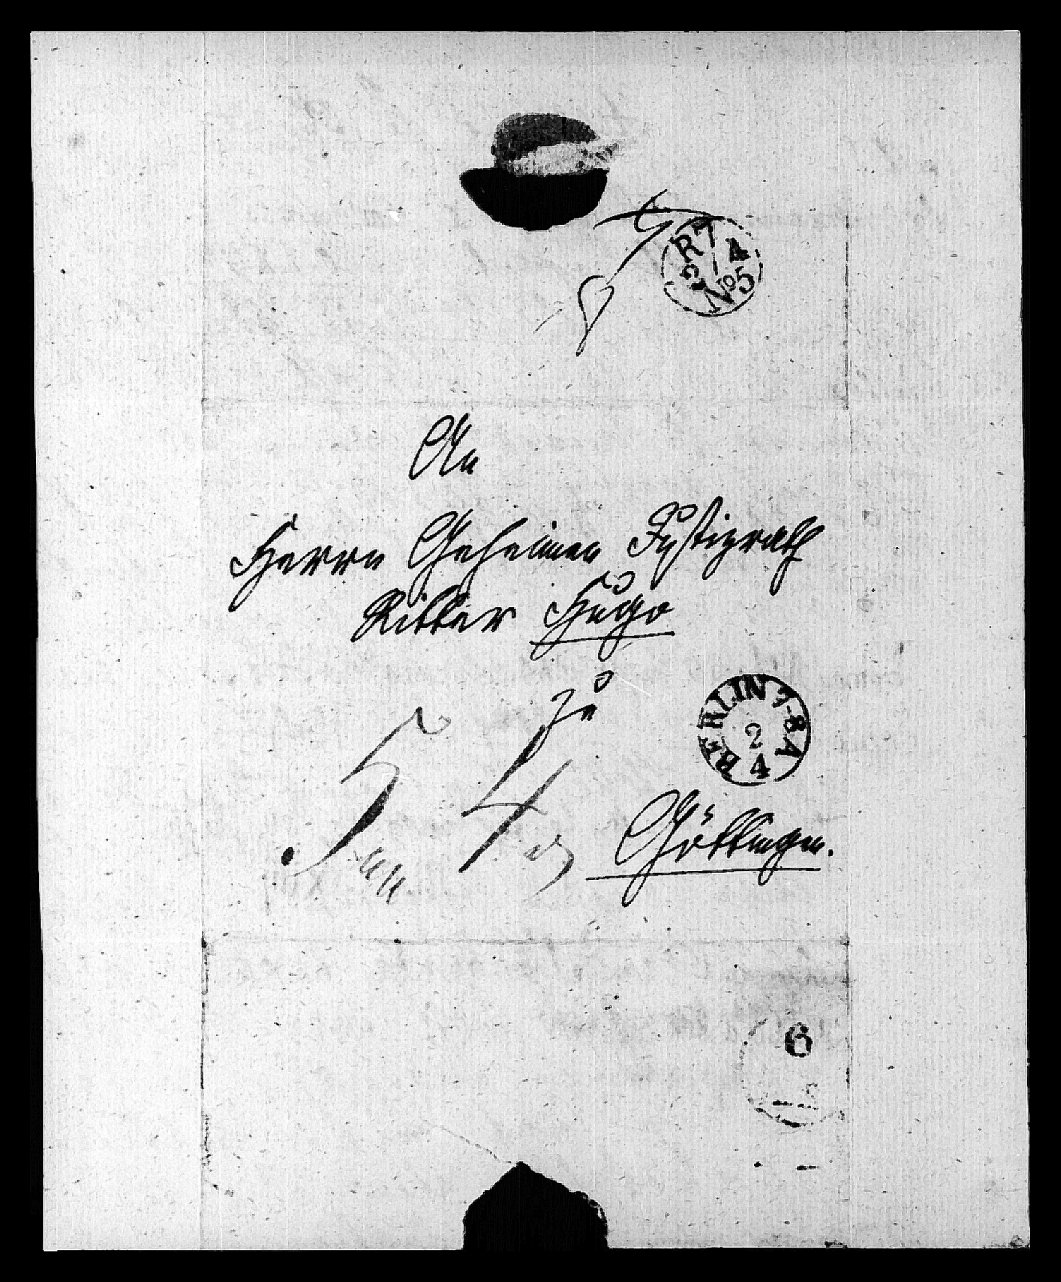 R 7 4
2 / No 5
An
Herrn Geheimen Justizrath
Ritter Hugo
zu
BERLIN 7-8 A
2
4
5 4
Göttingen.
6